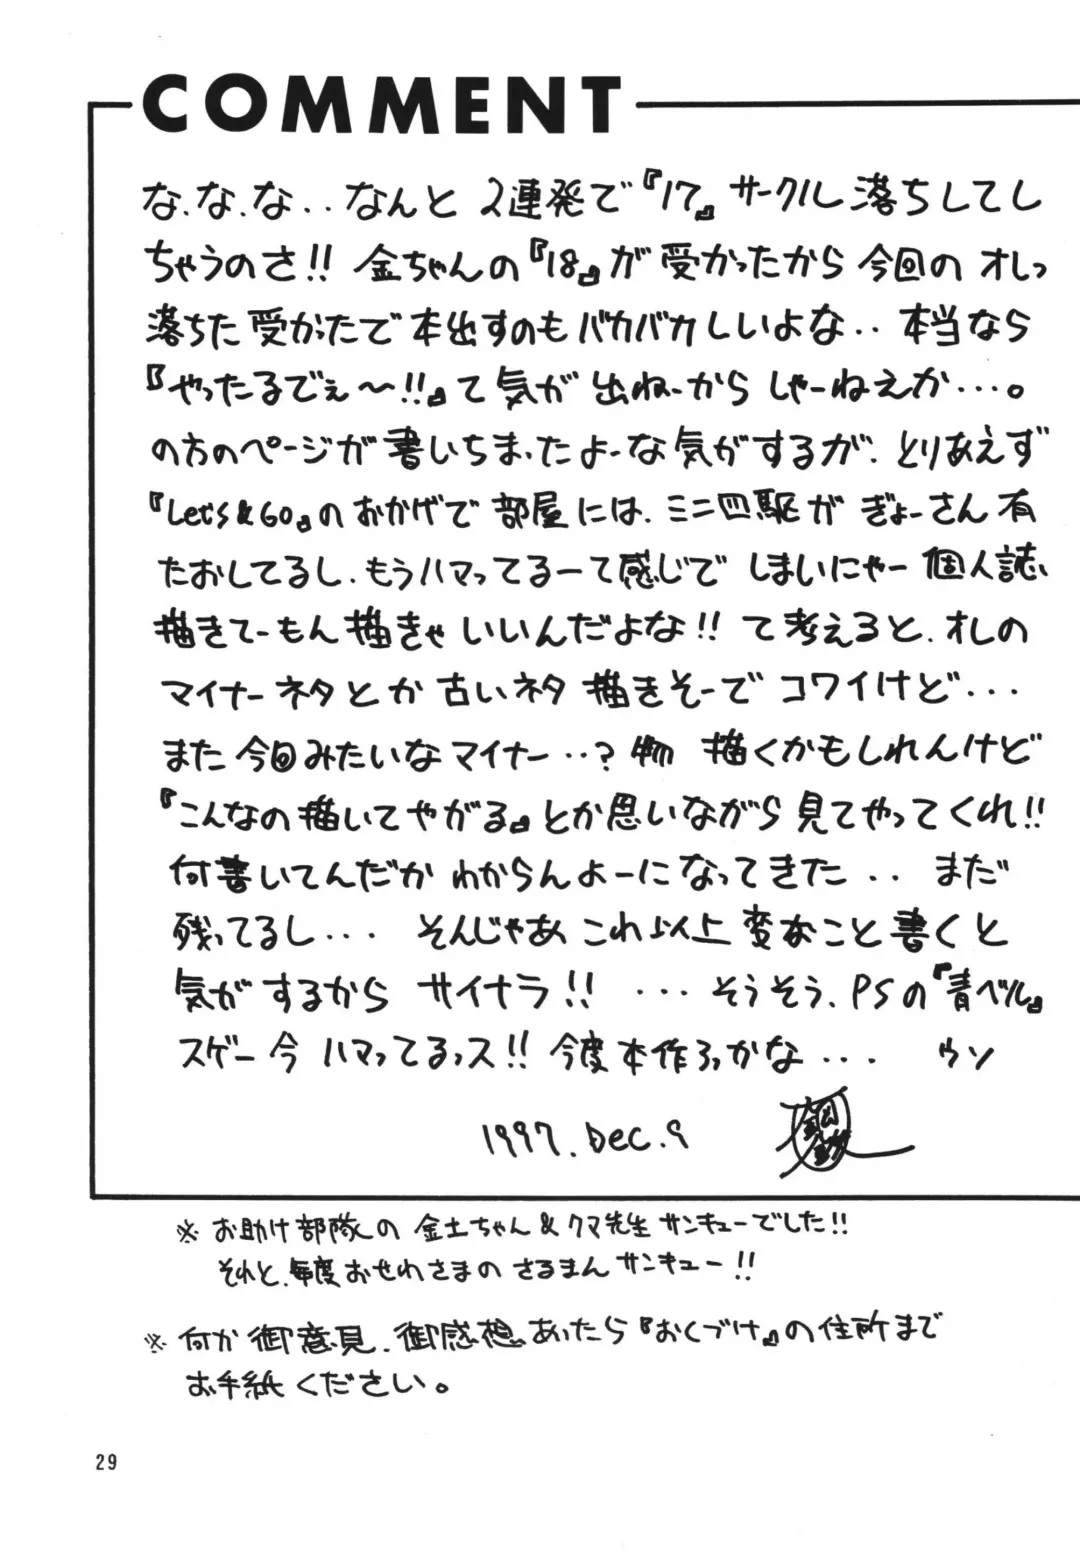 COMMENT
な、な、な‥なんと 2連発で『17』サークル落ちしてし
ちゃうのさ!! 金ちゃんの『18』が受かったから今回のオレっ
落ちた受かたで本出すのもバカバカしいよな‥ 本当なら
『やったるでぇ〜!!』て気が出ねーから しゃーねえか…。
の方のページが書いちまったよーな気がするが、とりあえず
『Let's&Go』のおかげで部屋には、ミニ四駆がぎょーさん有
たおしてるし、もうハマってるーて感じで しまいにゃー個人誌、
描きてーもん描きゃいいんだよな!! て考えると、オレの
マイナーネタとか古いネタ描きそーでコワイけど…
また今回みたいなマイナー‥?物 描くかもしれんけど
『こんなの描いてやがる』とか思いながら見てやってくれ!!
何書いてんだかわからんよーになってきた‥ まだ
残ってるし… そんじゃあこれ以上変なこと書くと
気がするからサイナラ!! …そうそう、PSの『青ベル』
スゲー今ハマってるっス!! 今度本作ろっかな… ウソ
1997.Dec.9
※お助け部隊の金土ちゃん&クマ先生サンキューでした!!
それと、毎度おせわさまのさるまんサンキュー!!
※何か御意見、御感想あったら『おくづけ』の住所まで
お手紙ください。
29